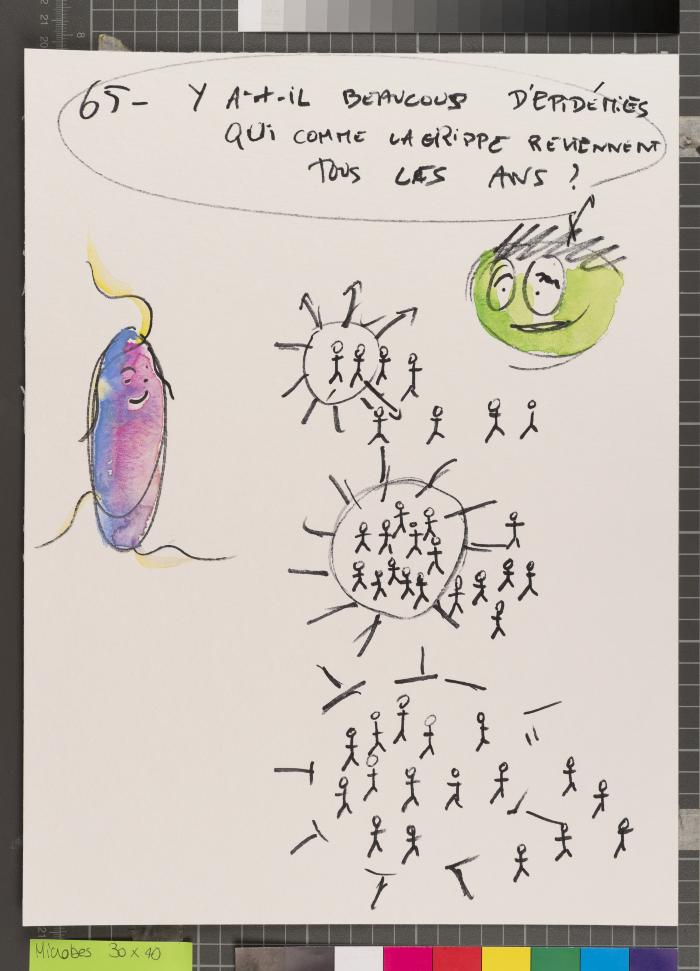 65- Y A-T-IL BEAUCOUP D'EPIDÉMIES
QUI COMME LA GRIPPE REVIENNENT
TOUS LES ANS ?
Microbes 30 x 40